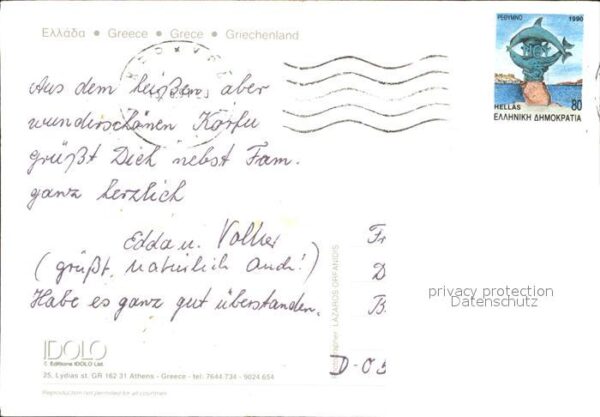 Ελλάδα • Greece • Grece • Griechenland
ΡΕΘΥΜΝΟ 1990
HELLAS 80
ΕΛΛΗΝΙΚΗ ΔΗΜΟΚΡΑΤΙΑ
Aus dem heißen aber
wunderschönen Korfu
grüßt Dich nebst Fam.
ganz herzlich
Edda u. Volker
(grüßt, natürlich auch!)
Habe es ganz gut überstanden.
Fr
D
B
D-03
privacy protection
Datenschutz
LAZAROS ORFANIDIS
IDOLO
© Editions IDOLO Ltd.
25, Lydias st. GR 162 31 Athens - Greece - tel: 7644 734 - 9024 654
Reproduction not permitted for all countries